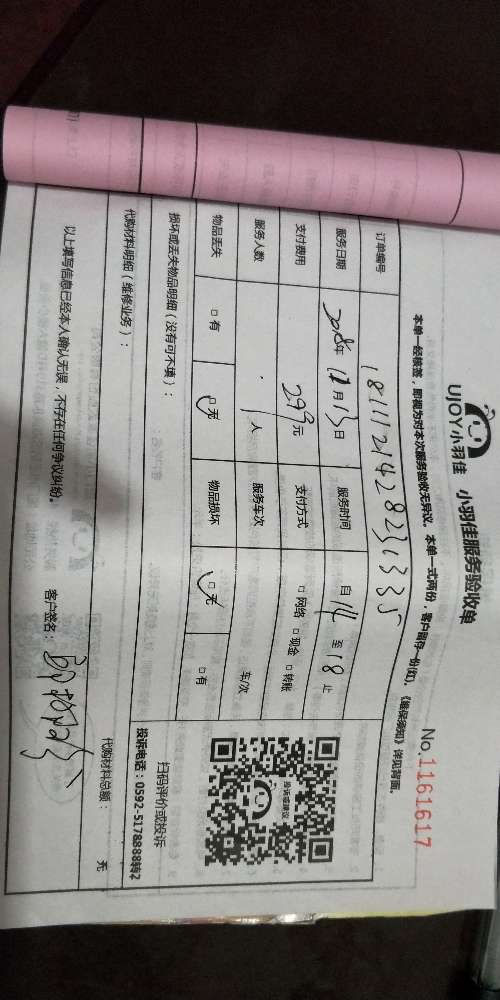 UJOY小羽佳 小羽佳服务验收单
No.1161617
本单一经核签，即视为对本次服务验收无异议。本单一式两份，客户留存一份(红)，《维保须知》详见背面。
订单编号 181112142823 1335
服务日期 2018年 12月13日 服务时间 自 14 至 18 止
支付费用 299元 支付方式 □网络 □现金 □转账
服务人数 1人 服务车次 车/次
物品丢失 □有 □无 物品损坏 □无 □有
损坏或丢失物品明细（没有可不填）：
投诉或建议
扫码评价或投诉
投诉电话：0592-5178888转2
代购材料明细（维修业务）：
代购材料总额： 元
以上填写信息已经本人确认无误，不存在任何争议纠纷。
客户签名：